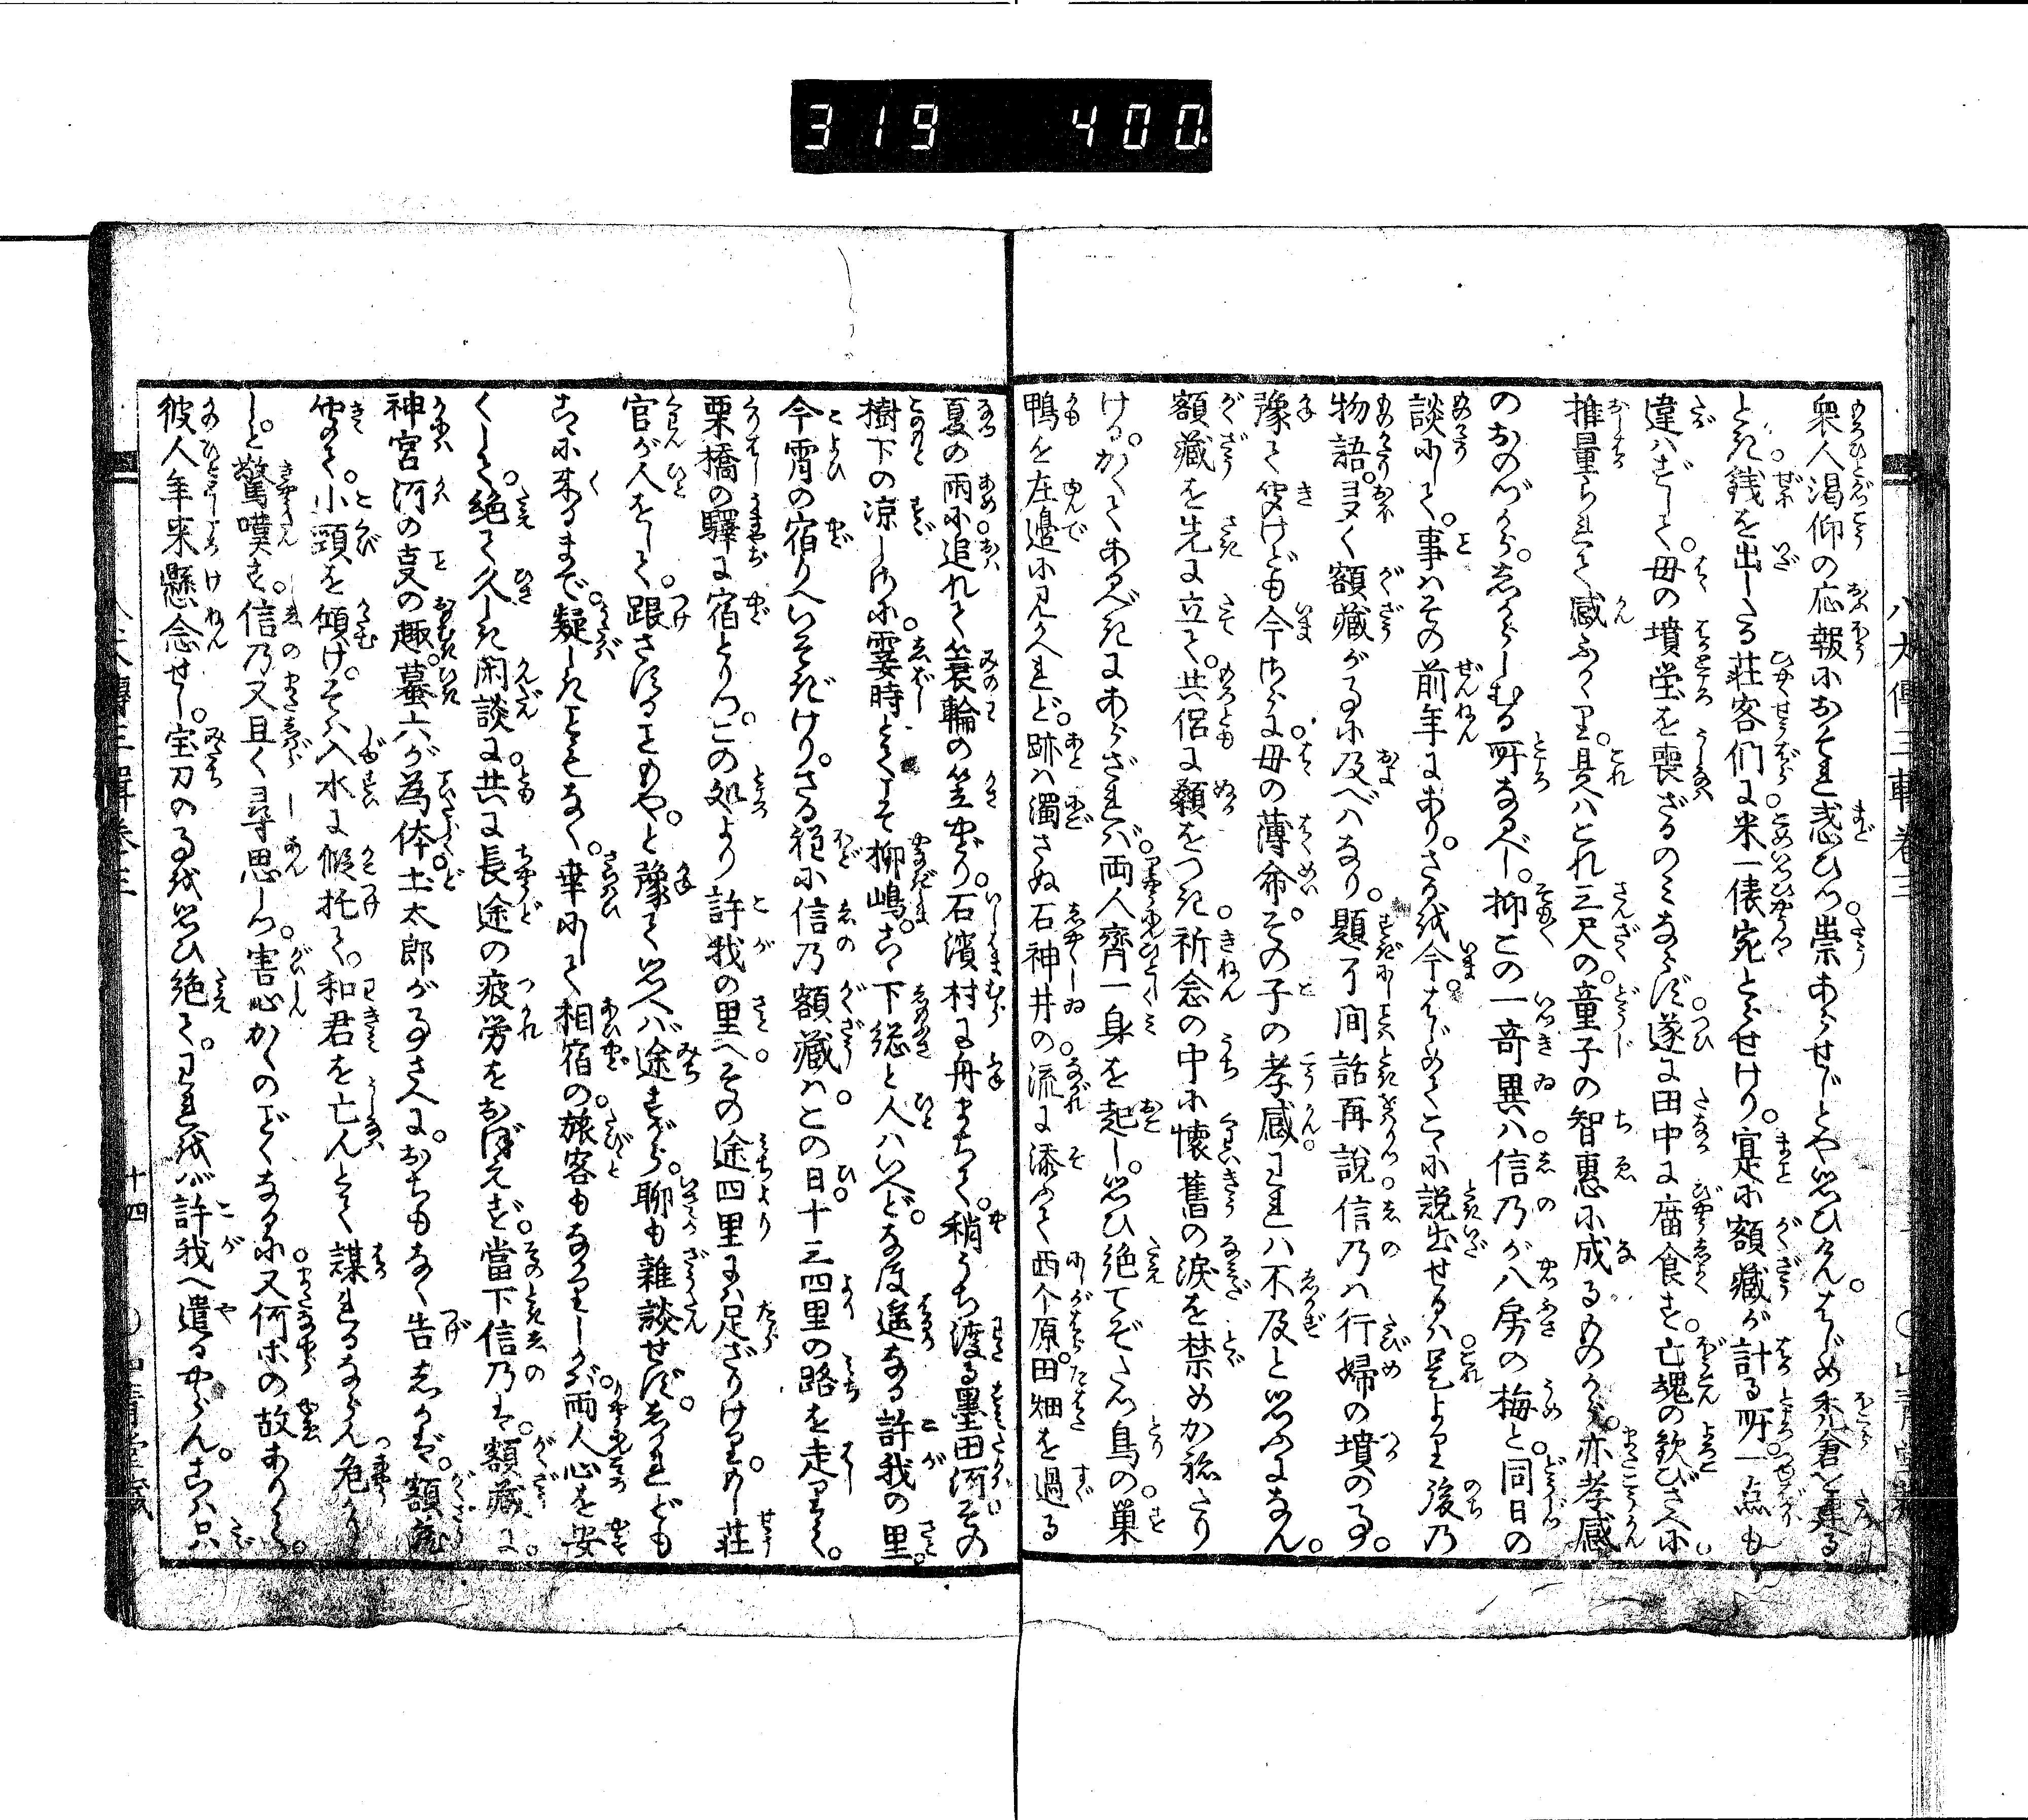 319 400
八犬傳三輯卷三
衆人渇仰の応報におそれ惑ひつ。祟あらせじとや思ひけん。はじめ禿倉を建る
とき。錢を出したる莊客們に米一俵宛とらせけり。寔に額藏が計る所。一点も
違はずして。母の墳塋を喪ざるのみならず。遂に田中に庿食す。亡魂の歡びさへに
推量られて感ふかし。是はこれ三尺の。童子の智惠に成るものから。亦孝感
のおのづから。しからしむる所なるべし。抑この一奇異は。信乃が八房の梅と。同日の
談にして。事はその前年にあり。さるを今。はじめてこゝに説出せるは。是より後の
物語。多く額藏がうへに及べばなり。題了間話再説信乃は。行婦の墳のうへ。
豫て聞けども今さらに。母の薄命。その子の孝感。われは不及と思ふになん。
額藏を先に立て。共侶に額をつき。祈念の中に懷舊の涙を禁めかねたり
ける。かくてあるべきにあらざれば。両人齊一身を起し。思ひ絶てぞたつ鳥の。巣
鴨を左邉に見かへれど。跡は濁さぬ石神井の。流に添ふて西个原。田畑を過る
夏の雨に追れて簑輪の笠やどり。石濱村に舟まちて。稍うち渡る墨田河。その
樹下の凉しさに。霎時とてこそ柳嶋。こゝ下総と人はいへど。なほ遙なる許我の里。
今宵の宿りへいそぎけり。さる程に信乃額藏は。この日。十三四里の路を走りて。
栗橋の驛に宿とりつ。この処より許我の里へ。その途四里には足ざりけり。もし莊
官が人をして。跟さすることもや。と豫て思へば途すがら。聊も雜談せず。されども
こゝに來るまで。疑しきこともなく。幸にして相宿の。旅客もなかりしかば。両人心を安
くして。絶て久しき閑談に。共に長途の疲労をおぼえず。當下信乃は。額藏に。
神宮河の支の趣。蟇六が為体。土太郎がうへさへに。おちもなく告しかば。額藏
聞て。小頸を傾け。そは入水に假托て。和君を亡んとて謀れるならん。危かり
し。と驚嘆す。信乃又且く尋思しつ。害心かくのごくなるに。又何等の故ありて。
彼人年来懸念せし。宝刀のうへを思ひ絶て。われをば許我へ遣るやらん。こは只
八犬傳三輯卷三 十四 山青堂藏